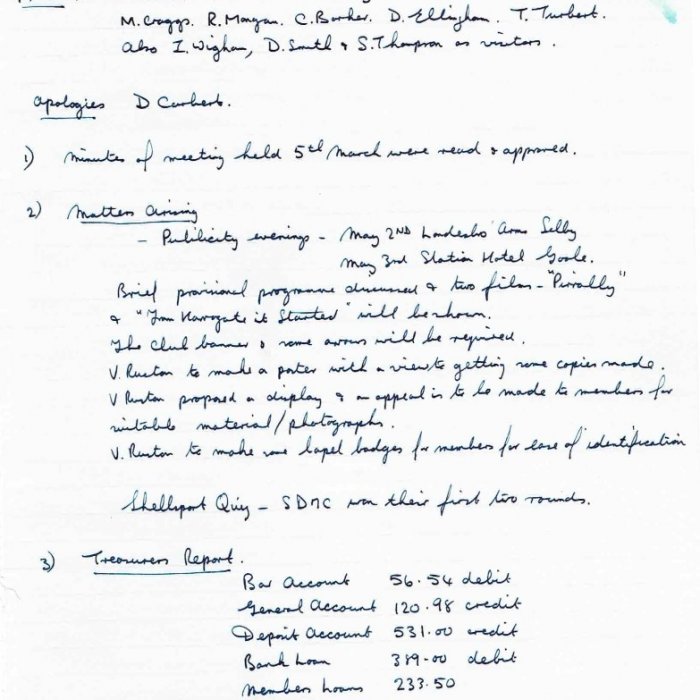 M. Craggs. R. Morgan. C. Barker. D. Ellingham. T. Turbert.
Also I. Wigham, D. Smith & S. Thompson as visitors.
Apologies D Curbert.
1) Minutes of meeting held 5th March were read & approved.
2) Matters arising
- Publicity evenings - May 2ND Londesbro' Arms Selby
May 3rd Station Hotel Goole.
Brief provisional programme discussed & two films - "Pirrally"
& "From Harrogate it Started" will be shown.
The Club banner & some arrows will be required.
V. Ruston to make a poster with a view to getting some copies made.
V Ruston proposed a display & an appeal is to be made to members for
suitable material/photographs.
V. Ruston to make some lapel badges for members for ease of identification
Shellsport Quiz - SDMC won their first two rounds.
3) Treasurers Report.
Bar Account 56.54 debit
General Account 120.98 credit
Deposit Account 531.00 credit
Bank Loan 389.00 debit
Members Loans 233.50